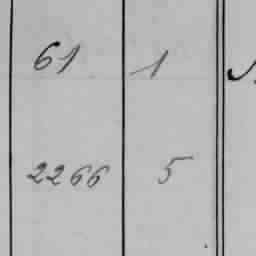 61 1
2266 5